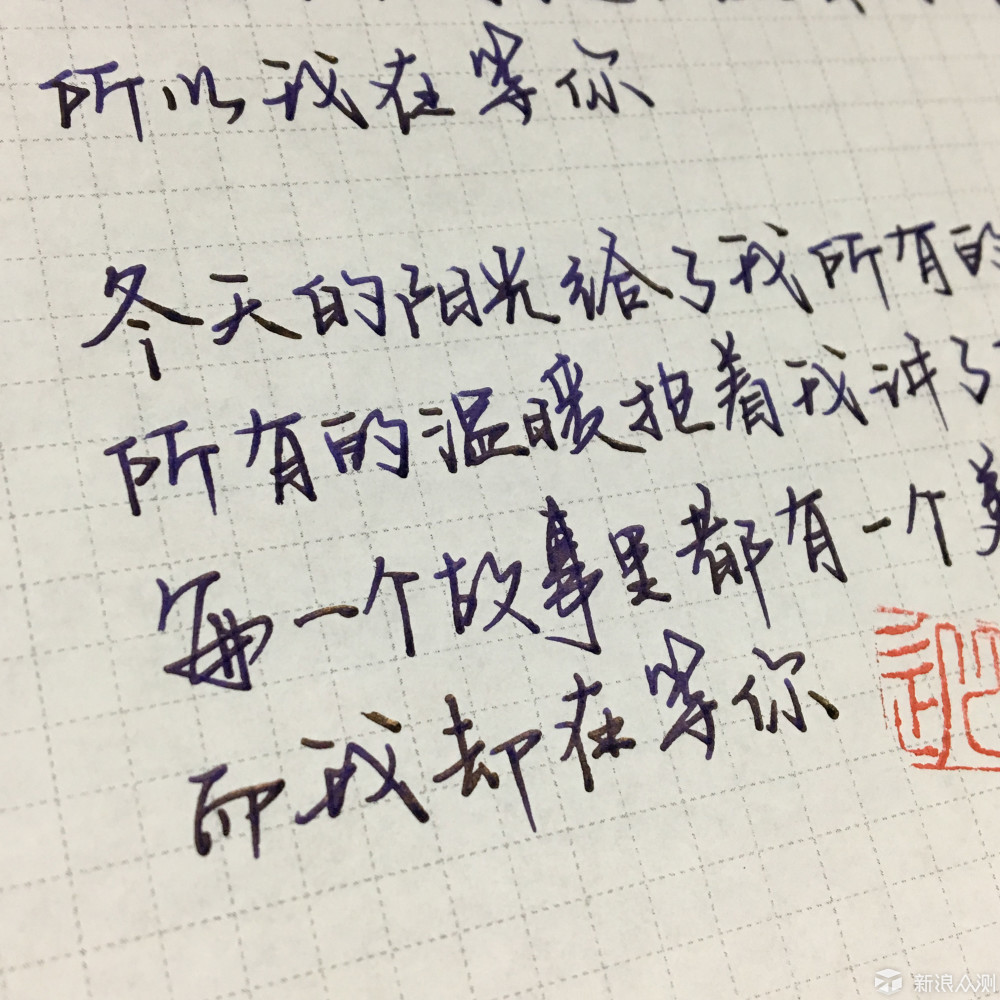 所以我在等你
冬天的阳光给了我所有的
所有的温暖抱着我讲了
每一个故事里都有一个美
而我却在等你
新浪众测